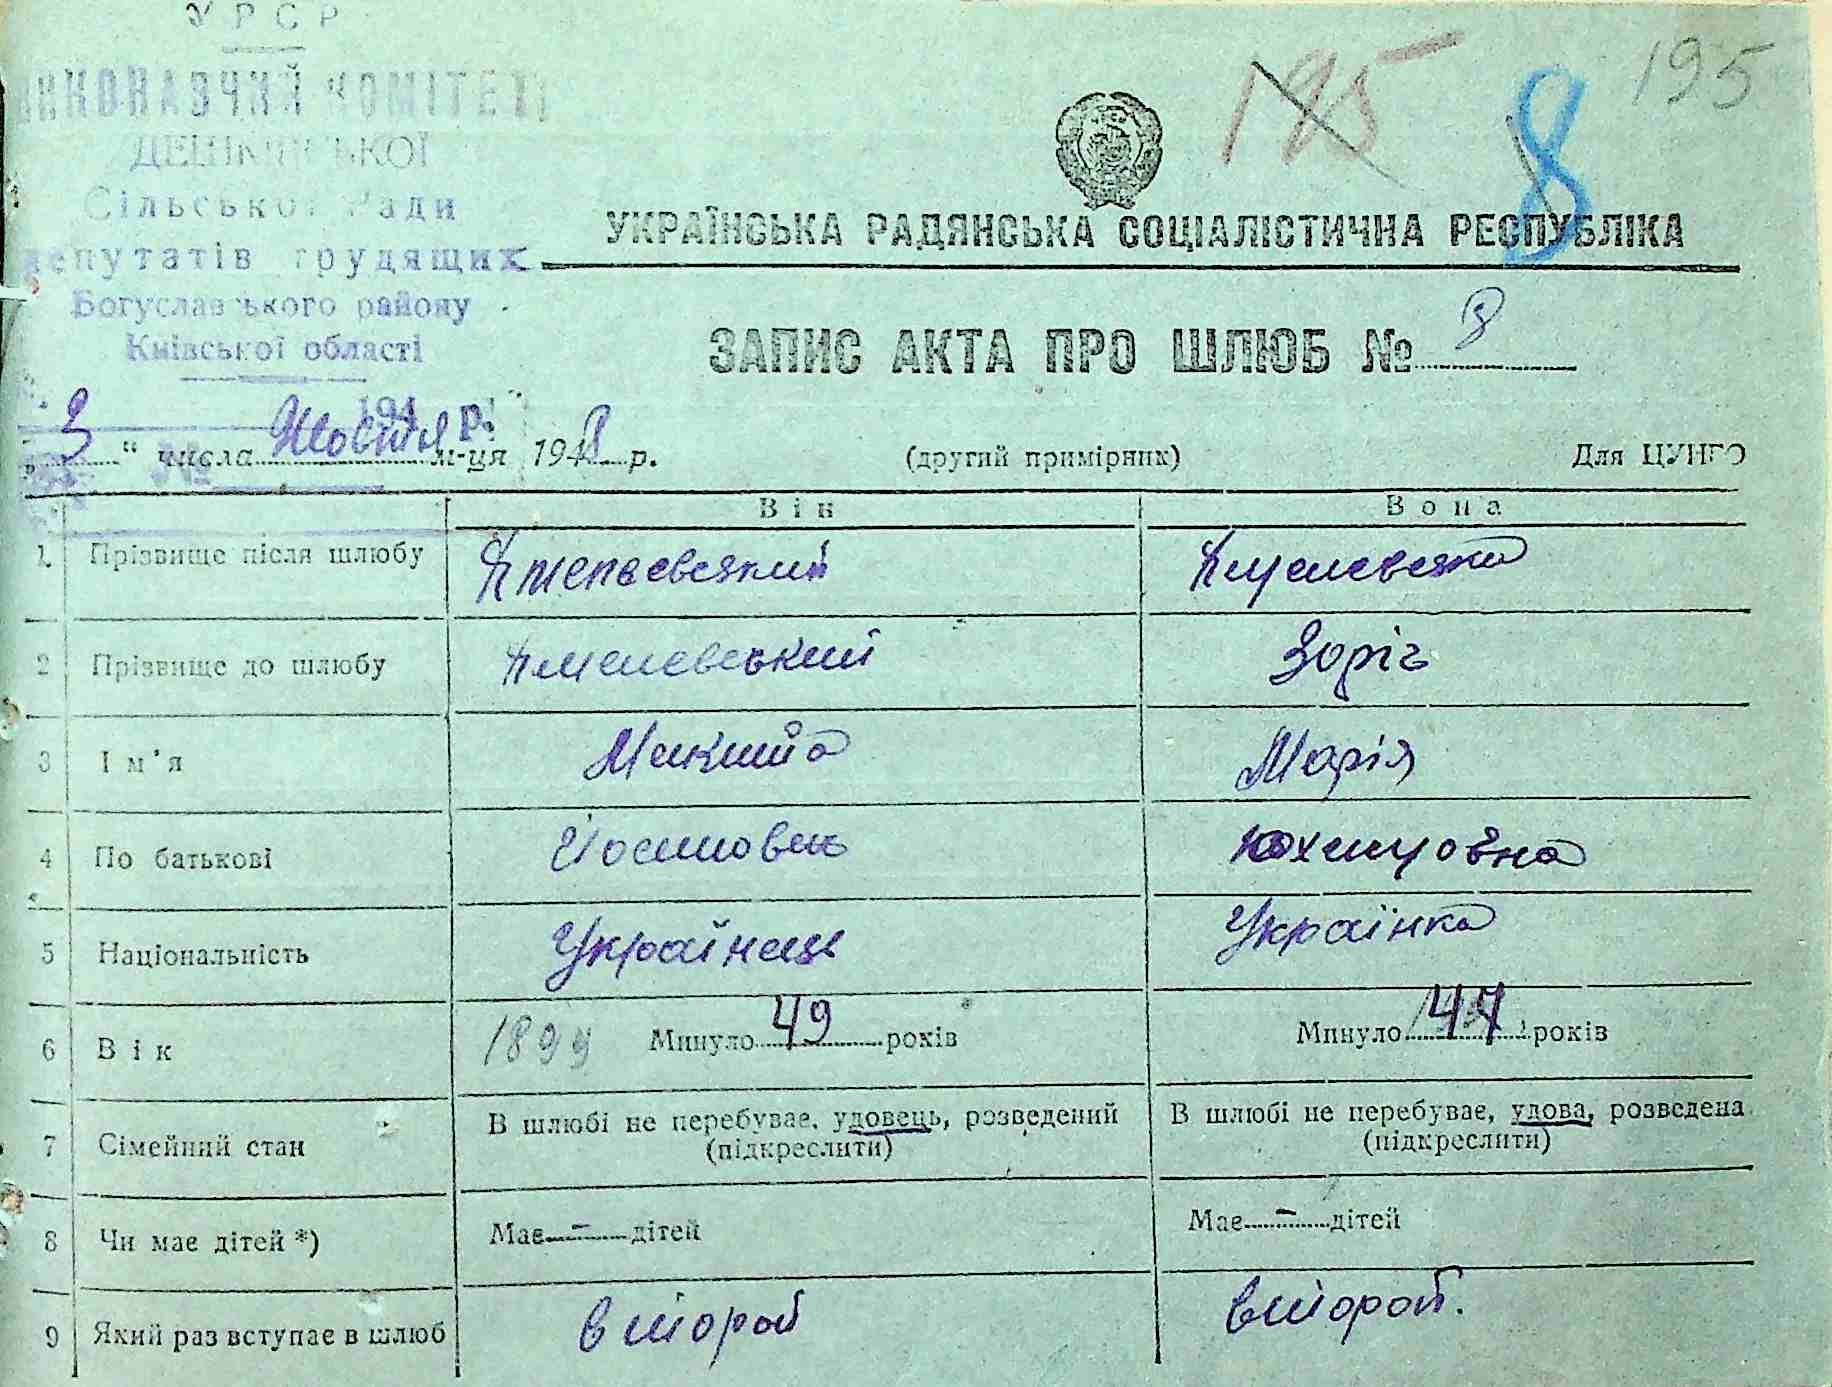 УРСР
ВИКОНАВЧИЙ КОМІТЕТ
Сільської Ради
депутатів трудящих
Богуславського району
Київської області
194 р.
№
195 8 195
УКРАЇНСЬКА РАДЯНСЬКА СОЦІАЛІСТИЧНА РЕСПУБЛІКА
ЗАПИС АКТА ПРО ШЛЮБ № 8
„3“ числа Жовтня м-ця 1948 р. (другий примірник) Для ЦУНГО
Він Вона
1. Прізвище після шлюбу
2 Прізвище до шлюбу Зоріч
3 Ім'я Микита Марія
4 По батькові Йосипович Юхимовна
5 Національність Українець Українка
6 Вік 1899 Минуло 49 років Минуло 47 років
7 Сімейний стан В шлюбі не перебуває, удовець, розведений (підкреслити) В шлюбі не перебуває, удова, розведена (підкреслити)
8 Чи має дітей *) Має - дітей Має - дітей
9 Який раз вступає в шлюб второй второй.